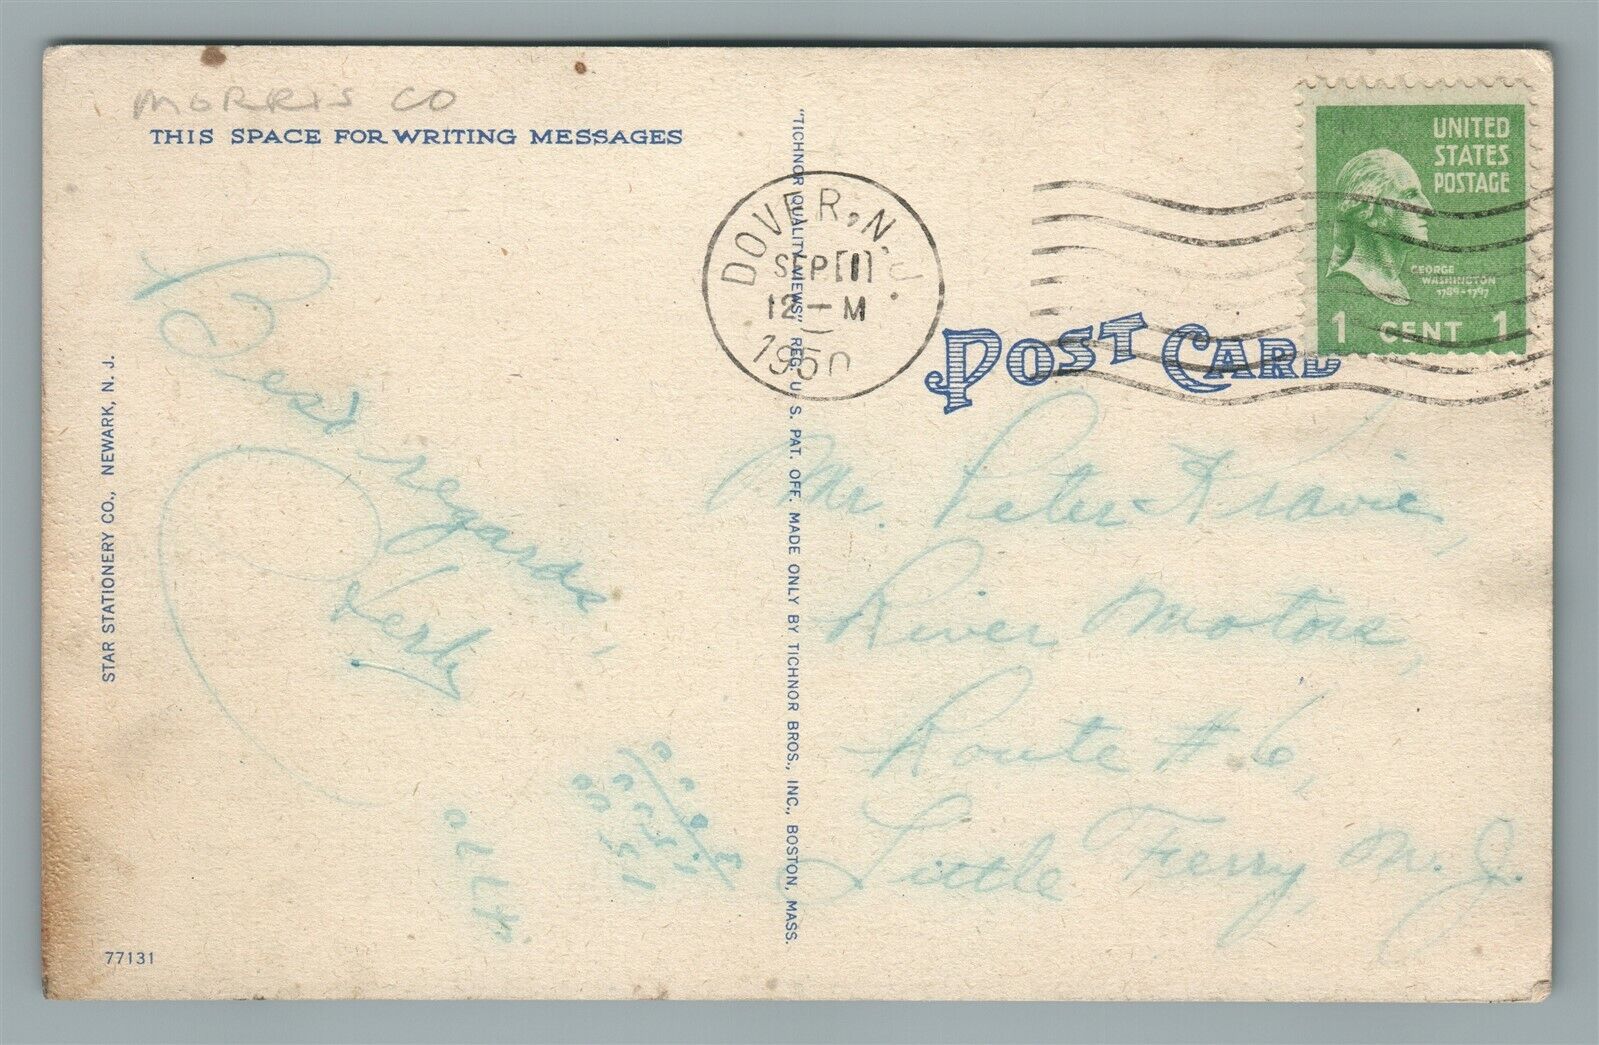 MORRIS CO
THIS SPACE FOR WRITING MESSAGES
Best regards,
Herb
STAR STATIONERY CO., NEWARK, N. J.
77131
"TICHNOR QUALITY VIEWS," REG. U. S. PAT. OFF. MADE ONLY BY TICHNOR BROS., INC., BOSTON, MASS.
DOVER, N.J.
SEP 11
12 - M
1950
UNITED
STATES
POSTAGE
GEORGE
WASHINGTON
1789-1797
1 CENT 1
POST CARD
Mr. Peter Kravic,
River Motors,
Route #6,
Little Ferry, N. J.